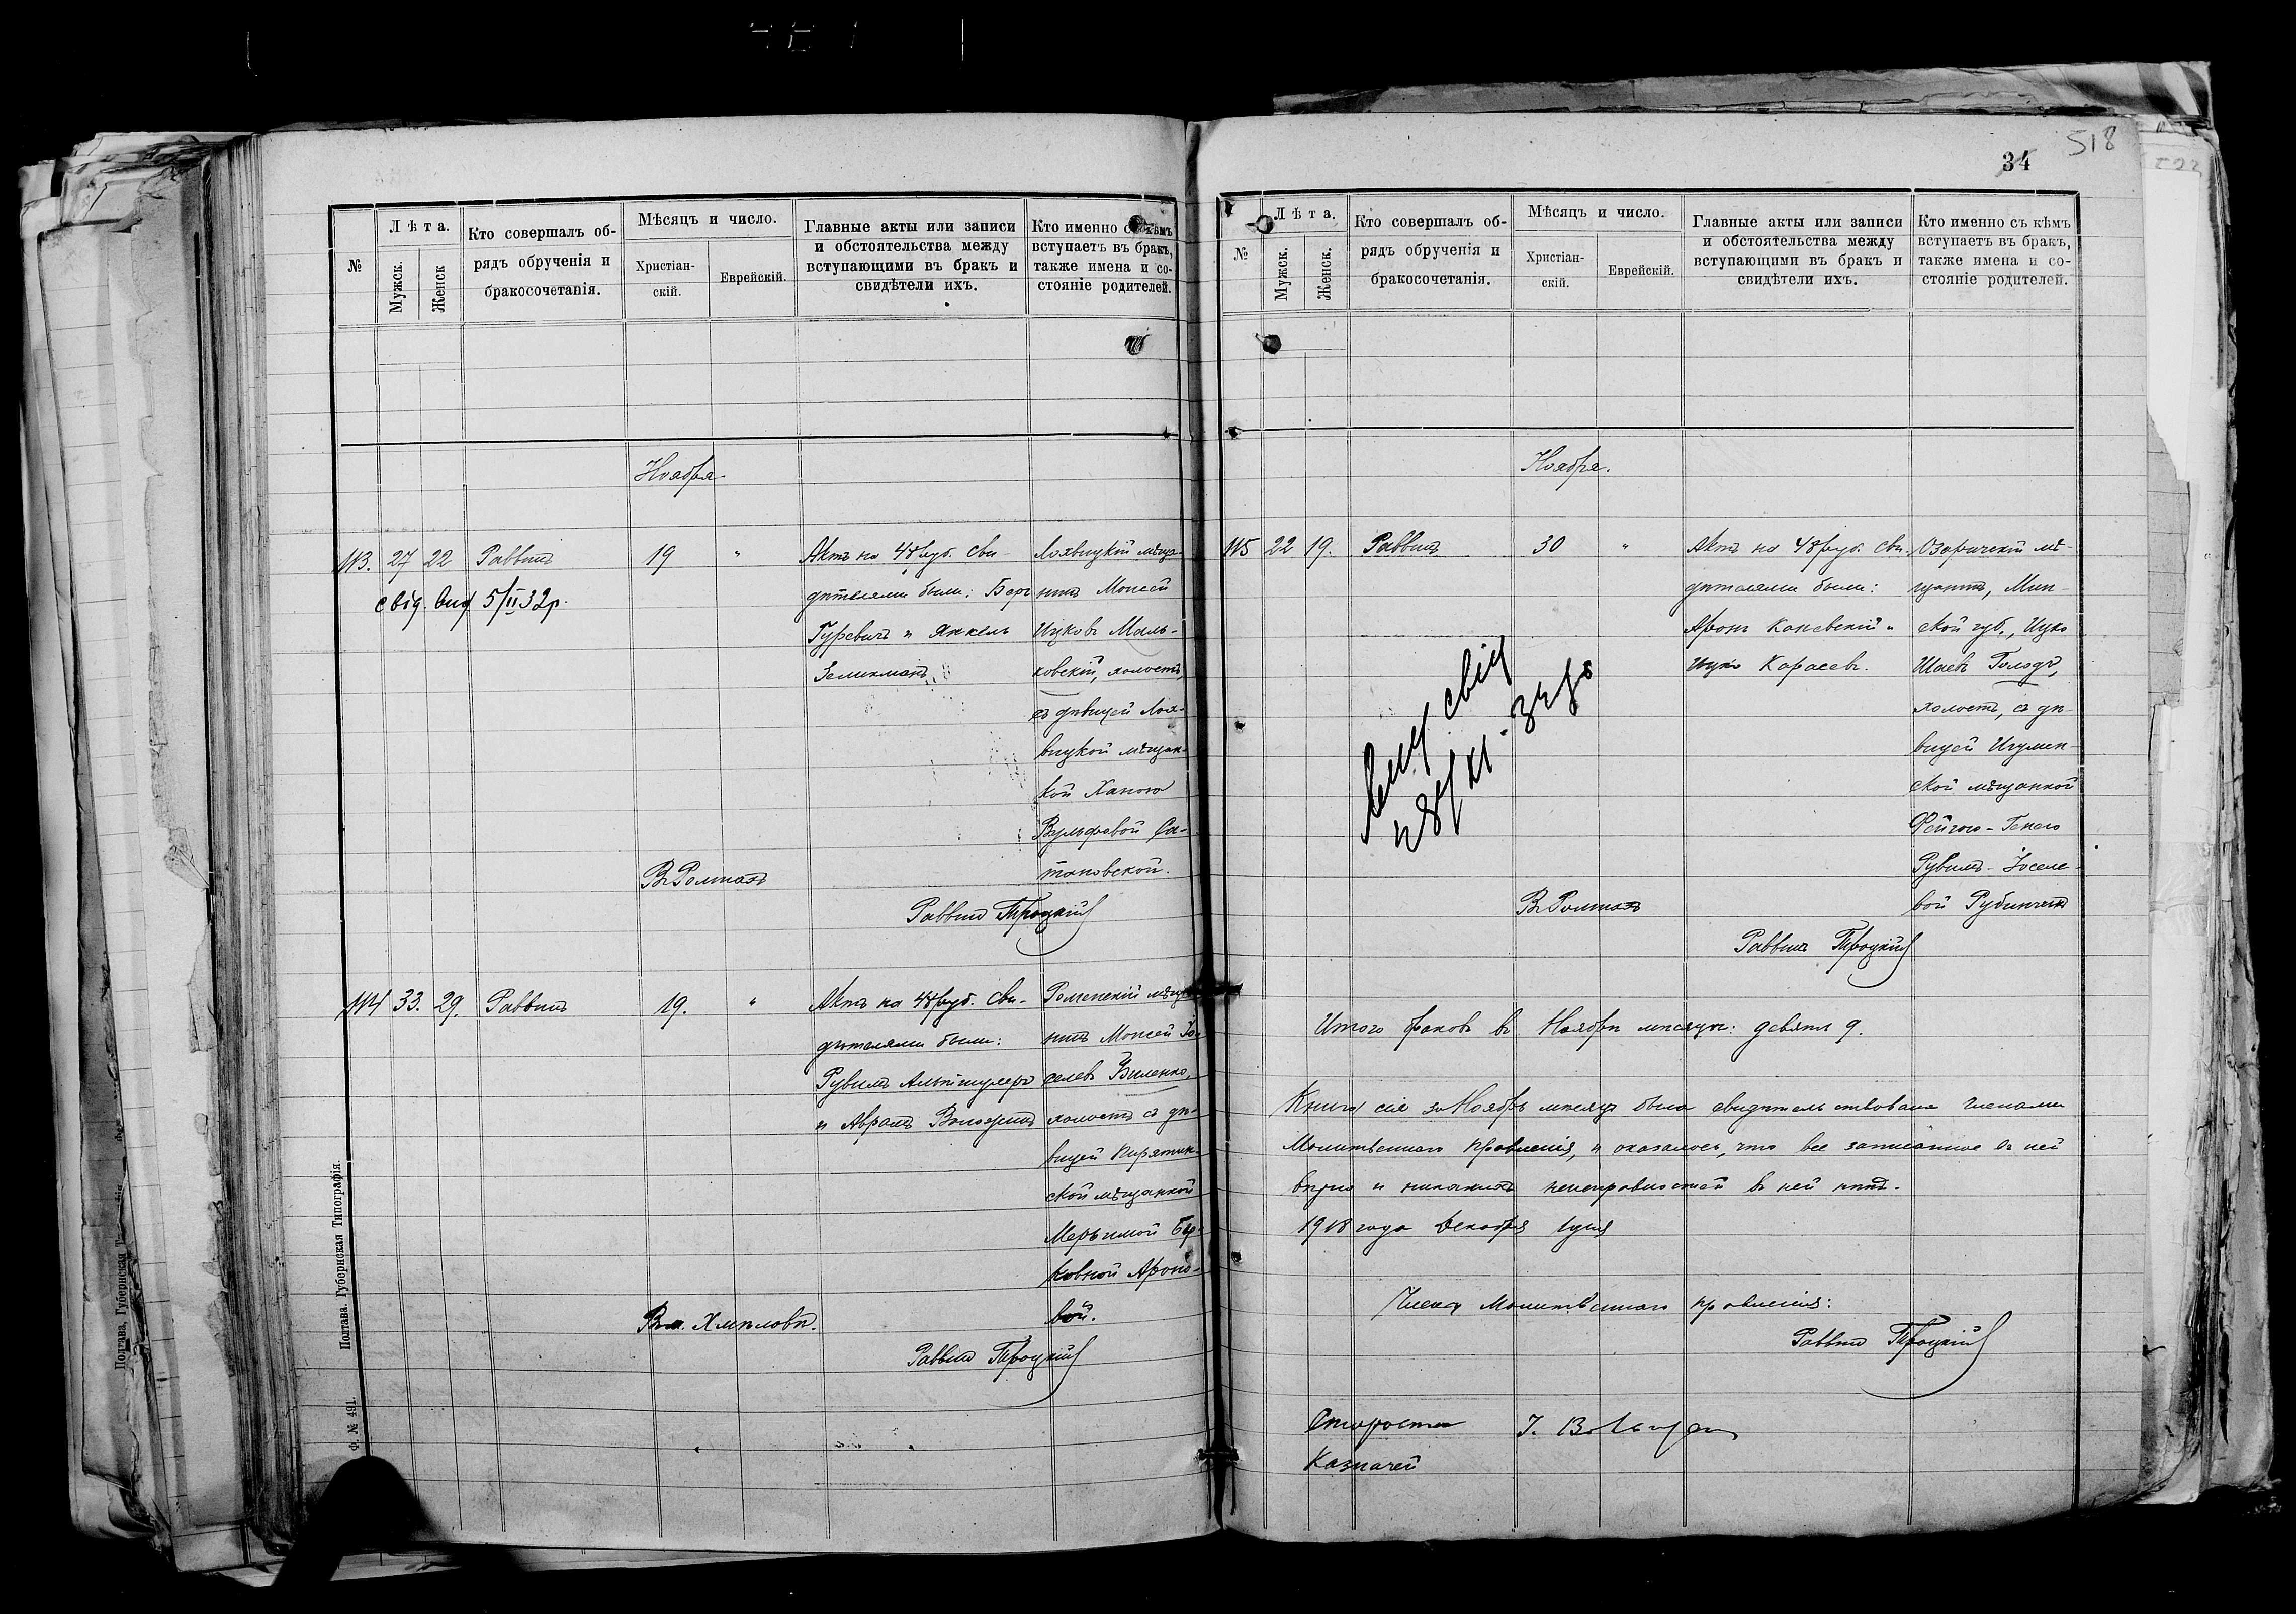 34
518
№
Лѣта.
Мужск.
Женск
Кто совершалъ об-
рядъ обрученія и
бракосочетанія.
Мѣсяцъ и число.
Христіан-
скій.
Еврейскій.
Главные акты или записи
и обстоятельства между
вступающими въ бракъ и
свидѣтели ихъ.
Кто именно съ кѣмъ
вступаетъ въ бракъ,
также имена и со-
стояніе родителей.
Ноября
113. 27 22 Раввинъ 19 "
свід. вид 5/II 32р.
Актъ на 48 руб. Сви-
дѣтелями были: Беръ
Гуревичъ и Янкель
Зеликманъ
Лохвицкій мѣща-
нинъ Моисей
Ицковъ Маль-
ковскій, холостъ,
съ дѣвицей Лох-
вицкой мѣщан-
кой Ханою
Вульфовой Са-
тановской.
Въ Ромнахъ
Раввинъ Троцкій
114 33. 29. Раввинъ 19. "
Актъ на 48 руб. Сви-
дѣтелями были:
Рувимъ Альтшулеръ
и Абрамъ
Роменскій мѣща-
нинъ Моисей Іо-
селевъ Виленко,
холостъ съ дѣ-
вицей Пирятин-
ской мѣщанкой
Меръ
ковной Ароно-
вой.
Въ м. Хмѣловѣ.
Раввинъ Троцкій
Полтава. Губернская Типографія.
Ф. № 491.
Полтава, Губернская
№
Лѣта.
Мужск.
Женск.
Кто совершалъ об-
рядъ обрученія и
бракосочетанія.
Мѣсяцъ и число.
Христіан-
скій.
Еврейскій.
Главные акты или записи
и обстоятельства между
вступающими въ бракъ и
свидѣтели ихъ.
Кто именно съ кѣмъ
вступаетъ въ бракъ,
также имена и со-
стояніе родителей.
Ноября.
115 22 19. Раввинъ 30 "
Актъ на 48 руб. Сви-
дѣтелями были:
Аронъ Каневскій и
Ицко Карасевъ.
Озаричскій мѣ-
щанинъ, Мин-
ской губ., Ицко
Шаевъ Голодъ,
холостъ, съ дѣ-
вицей Игумен-
ской мѣщанкой
Фейгою-Генею
Рувимъ-Іоселе-
вой Рубинчикъ
Вид свід
28/XI
Въ Ромнахъ
Раввинъ Троцкій
Итого браковъ въ Ноябрѣ мѣсяцѣ: девять 9.
Книга сія за Ноябрь мѣсяцъ была свидѣтельствована членами
Молитвеннаго правленія, и оказалось, что все записанное въ ней
вѣрно и никакихъ неисправностей въ ней нѣтъ.
1918 года Декабря 1 дня
Члены Молитвеннаго правленія:
Раввинъ Троцкій
Староста
Казначей